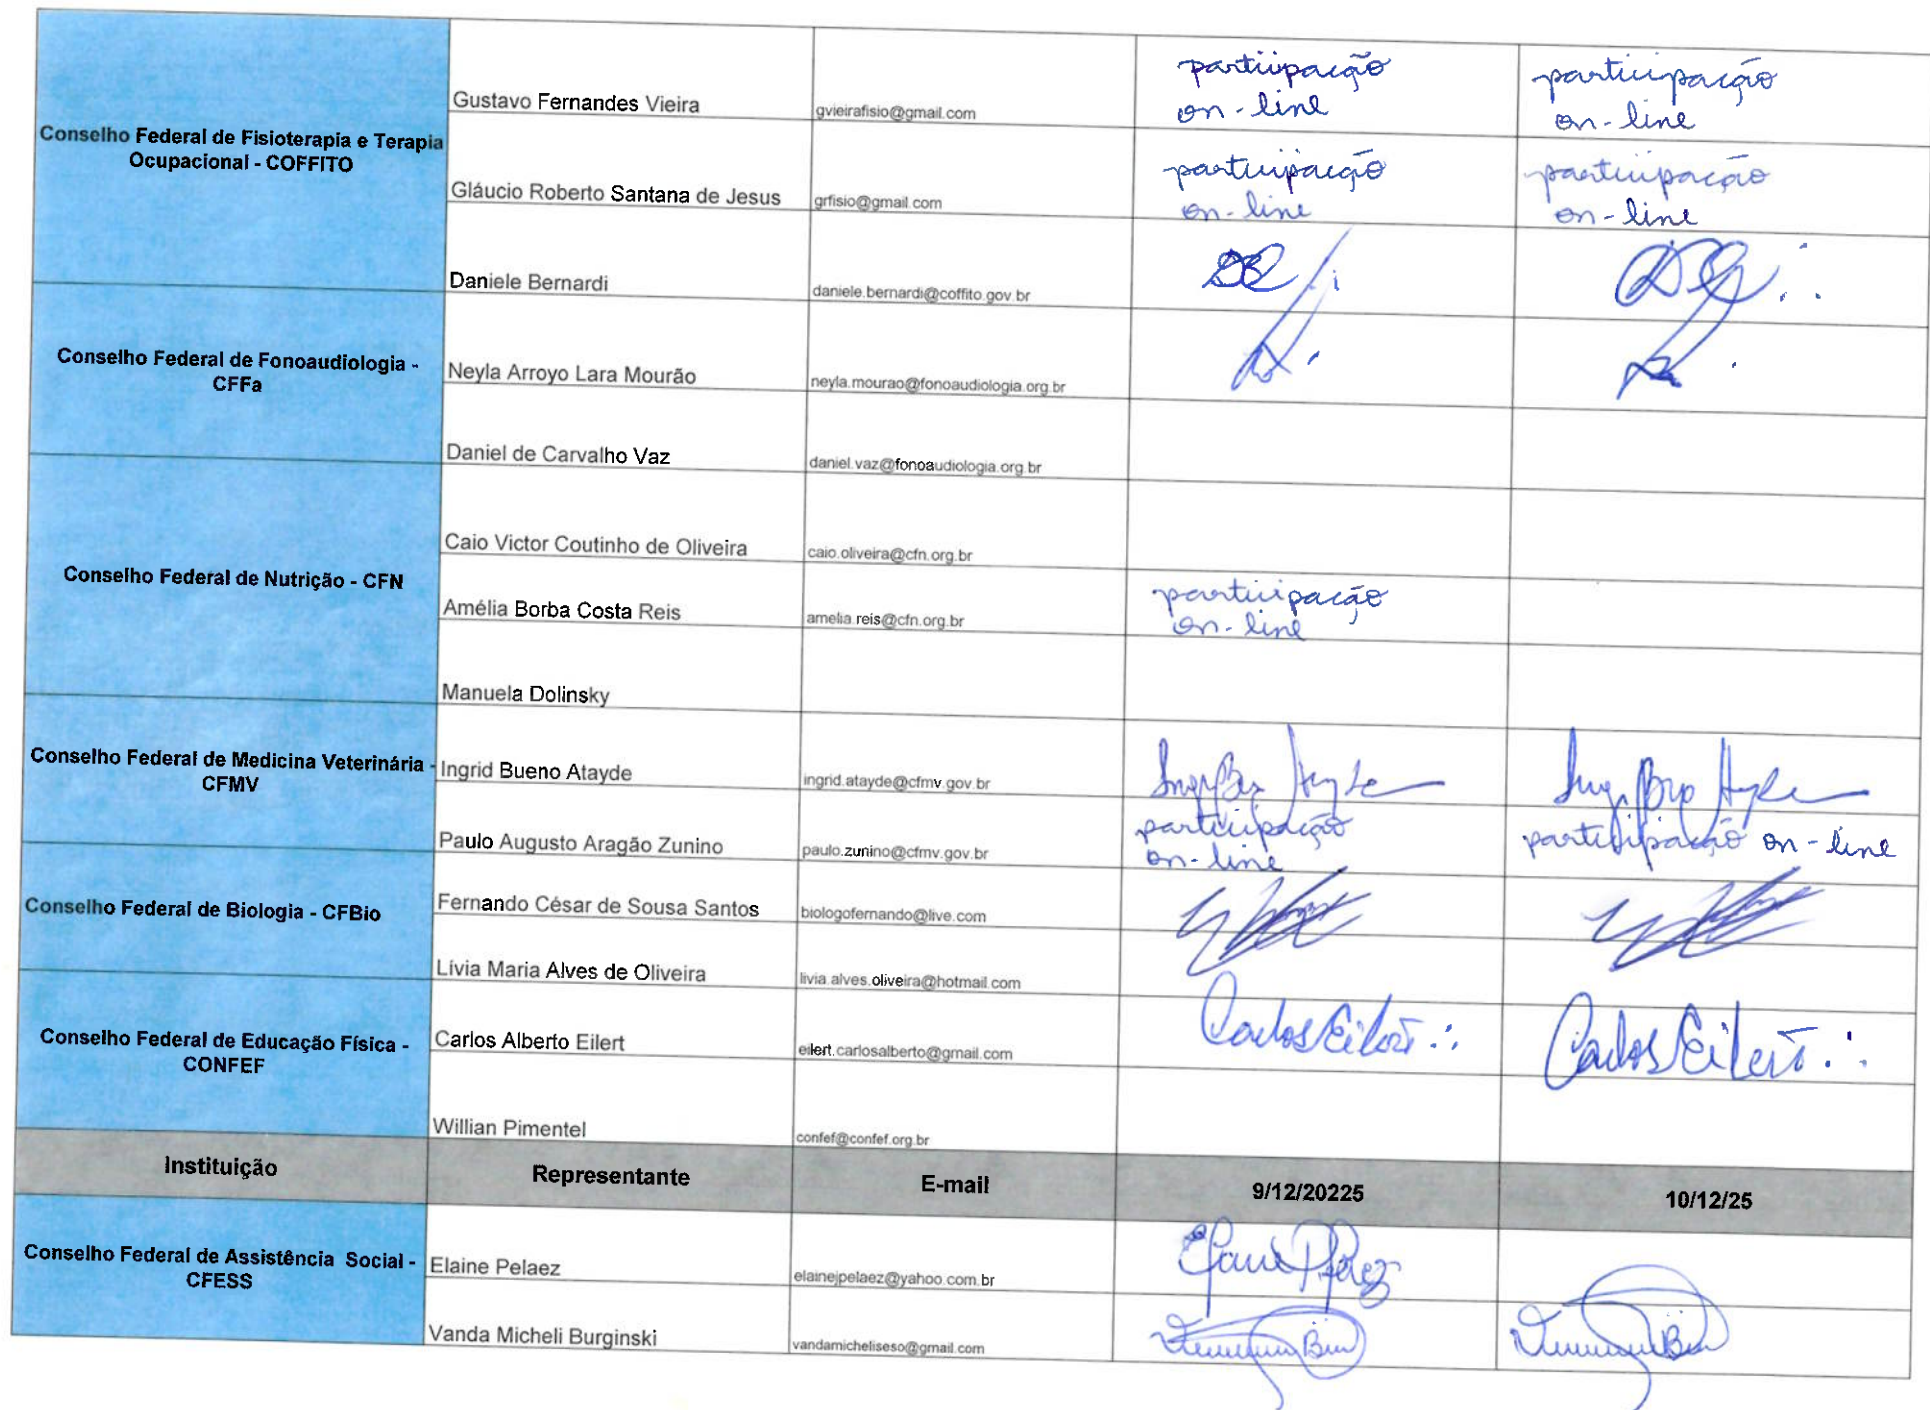 Conselho Federal de Fisioterapia e Terapia
Ocupacional - COFFITO
Gustavo Fernandes Vieira
gvieirafisio@gmail.com
participação
on-line
participação
on-line
Gláucio Roberto Santana de Jesus
grfisio@gmail.com
participação
on-line
participação
on-line
Daniele Bernardi
daniele.bernardi@coffito.gov.br
Conselho Federal de Fonoaudiologia -
CFFa
Neyla Arroyo Lara Mourão
neyla.mourao@fonoaudiologia.org.br
Daniel de Carvalho Vaz
daniel.vaz@fonoaudiologia.org.br
Conselho Federal de Nutrição - CFN
Caio Victor Coutinho de Oliveira
caio.oliveira@cfn.org.br
Amélia Borba Costa Reis
amelia.reis@cfn.org.br
participação
on-line
Manuela Dolinsky
Conselho Federal de Medicina Veterinária -
CFMV
Ingrid Bueno Atayde
ingrid.atayde@cfmv.gov.br
Paulo Augusto Aragão Zunino
paulo.zunino@cfmv.gov.br
participação
on-line
participação on-line
Conselho Federal de Biologia - CFBio
Fernando César de Sousa Santos
biologofernando@live.com
Lívia Maria Alves de Oliveira
livia.alves.oliveira@hotmail.com
Conselho Federal de Educação Física -
CONFEF
Carlos Alberto Eilert
eilert.carlosalberto@gmail.com
Carlos Eilert
Carlos Eilert
Willian Pimentel
confef@confef.org.br
Instituição
Representante
E-mail
9/12/20225
10/12/25
Conselho Federal de Assistência Social -
CFESS
Elaine Pelaez
elainejpelaez@yahoo.com.br
Vanda Micheli Burginski
vandamicheliseso@gmail.com